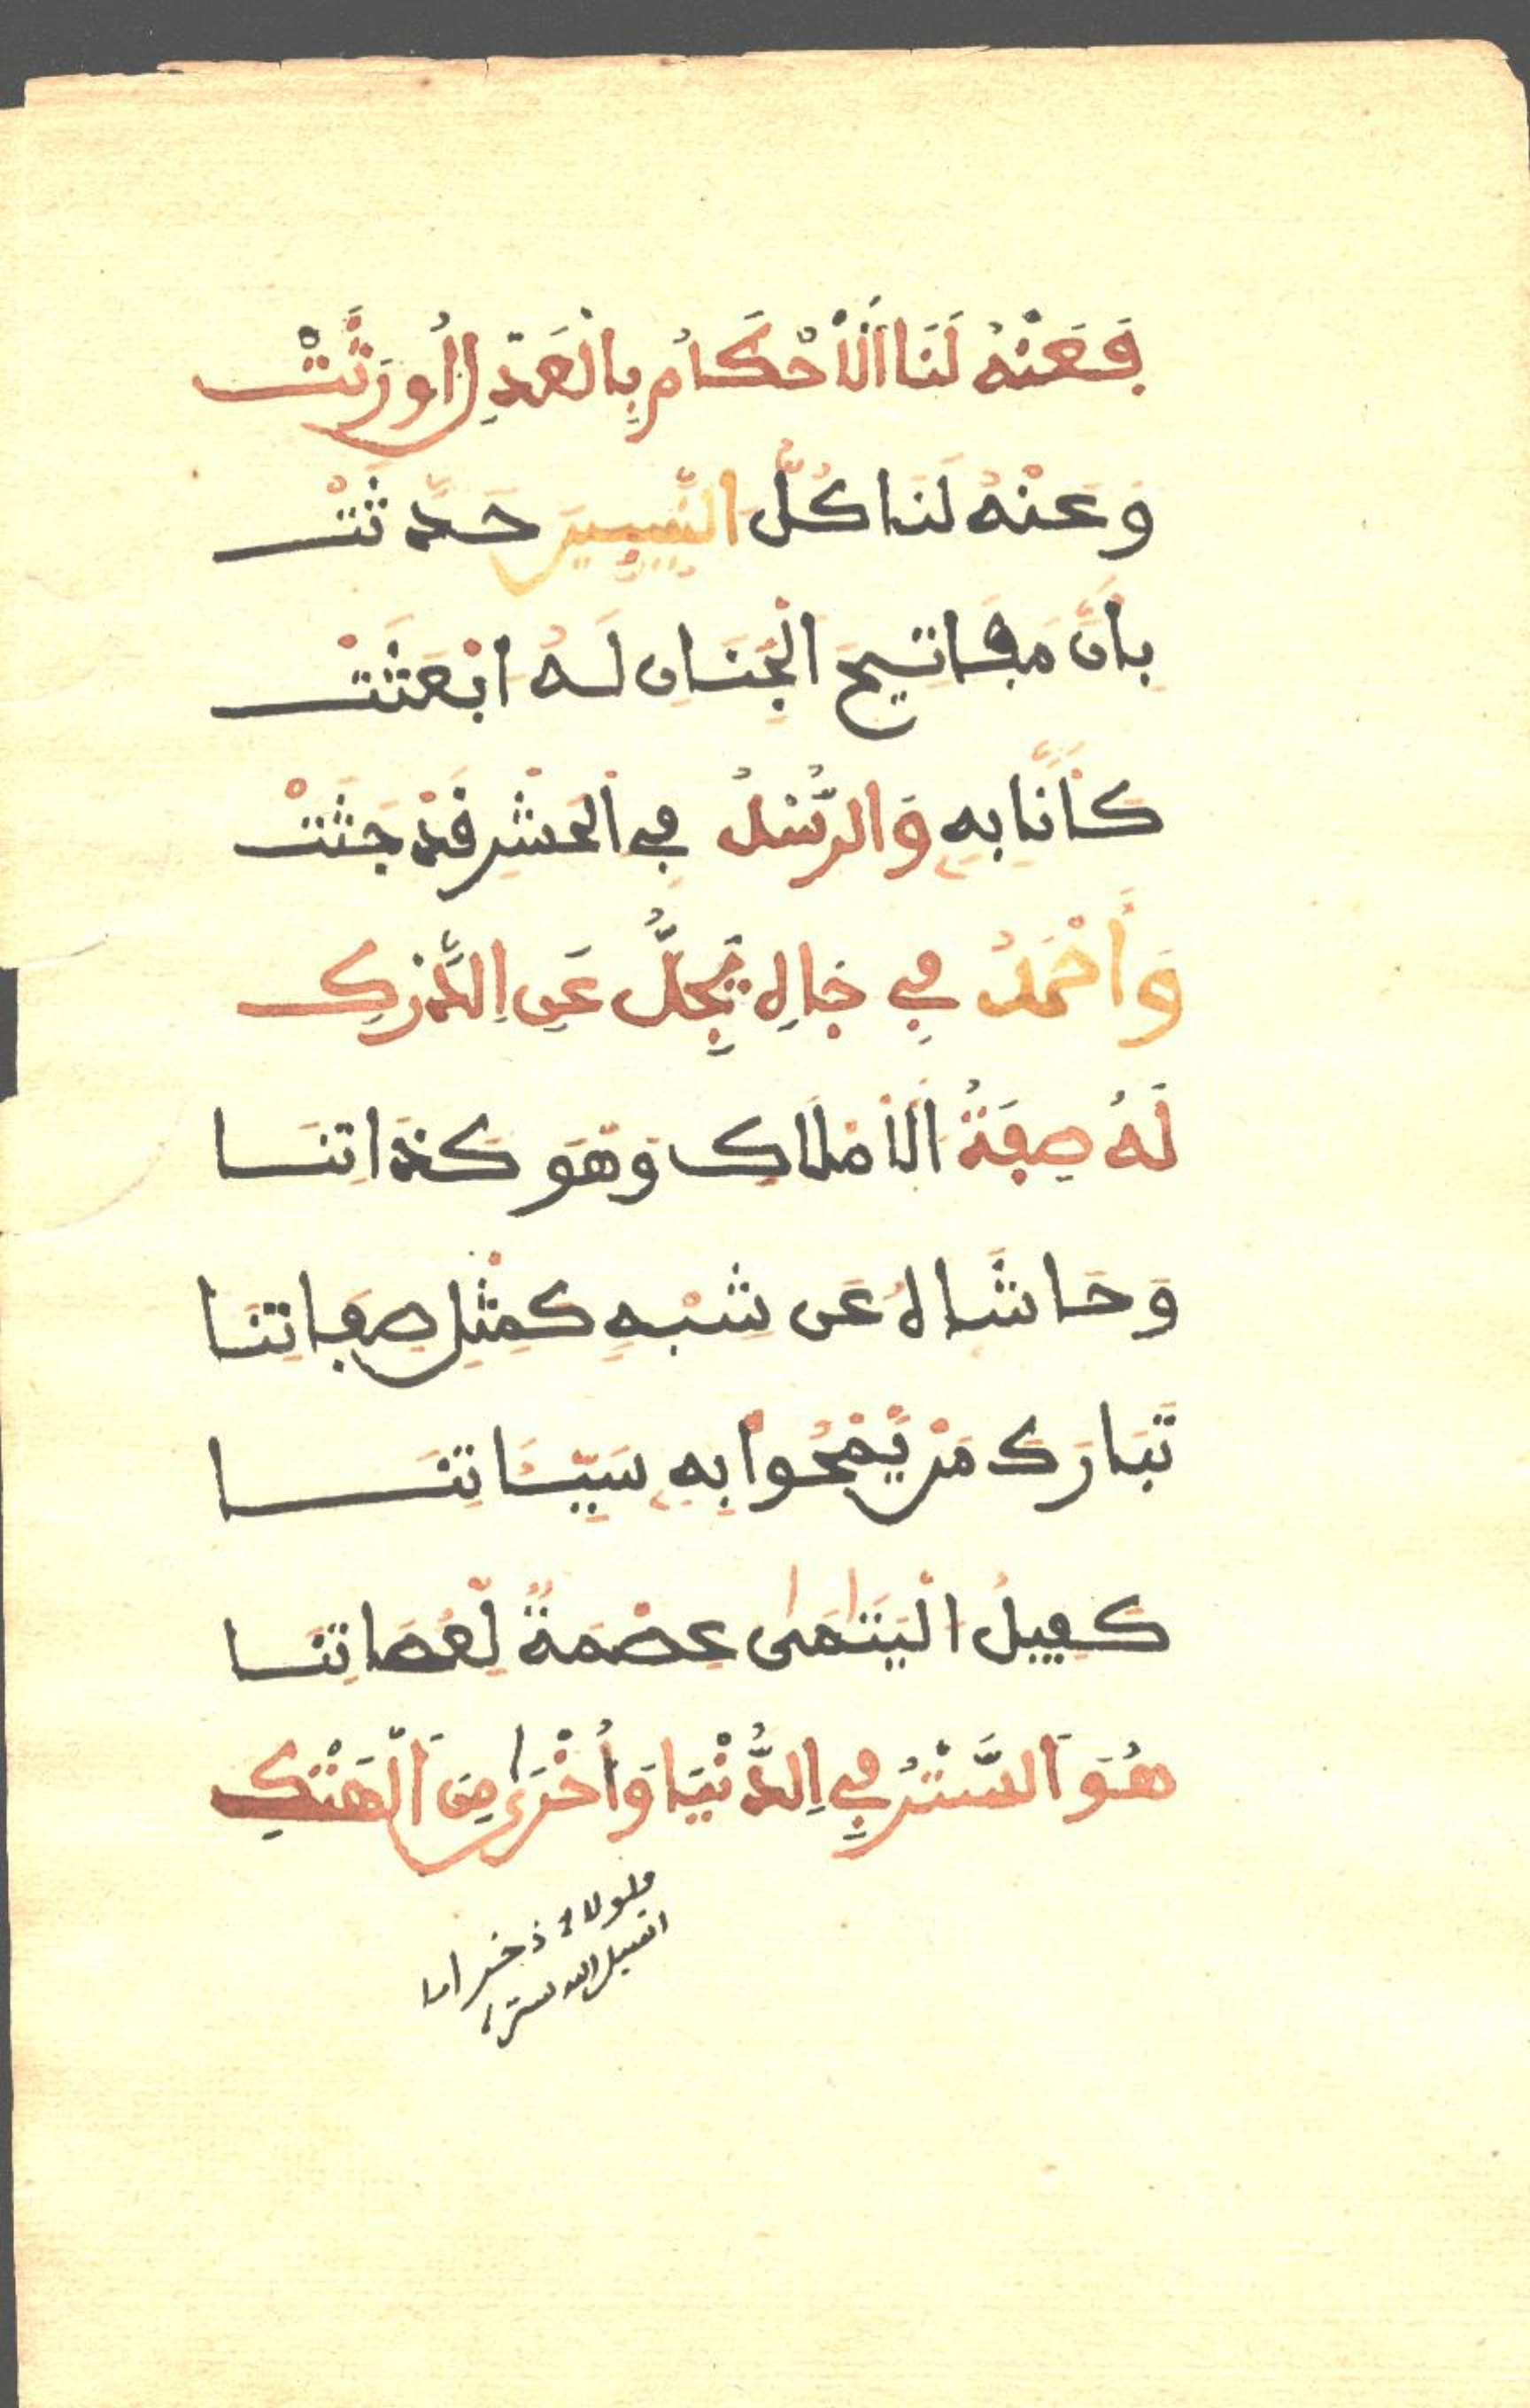 فَعَنْهُ لَنَا اَلْأَحْكَامُ بِالْعَدْلِ أُورِثَتْ
وَعَنْهُ لَنَا كُلُّ النَّبِيِّينَ حَدَّثَتْ
بِأَنَّ مَفَاتِيحَ الْجِنَانِ لَهُ انْبَعَثَتْ
كَأَنَّا بِهِ وَالرُّسْلُ فِي الْحَشْرِ قَدْ جَثَتْ
وَأَحْمَدُ فِي حَالٍ يَجِلُّ عَنِ الدَّرْكِ
لَهُ صِفَةُ الْأَمْلَاكِ وَهْوَ كَذَاتِنَا
وَحَاشَا لَهُ عَنْ شِبْهِ كَمِثْلِ صِفَاتِنَا
تَبَارَكَ مَنْ يَمْحُوا بِهِ سَيِّئَاتِنَا
كَفِيلُ الْيَتَامَى عِصْمَةٌ لِعُصَاتِنَا
هُوَ السَّتْرُ فِي الدُّنْيَا وَأُخْرَى مِنَ الْهَتْكِ